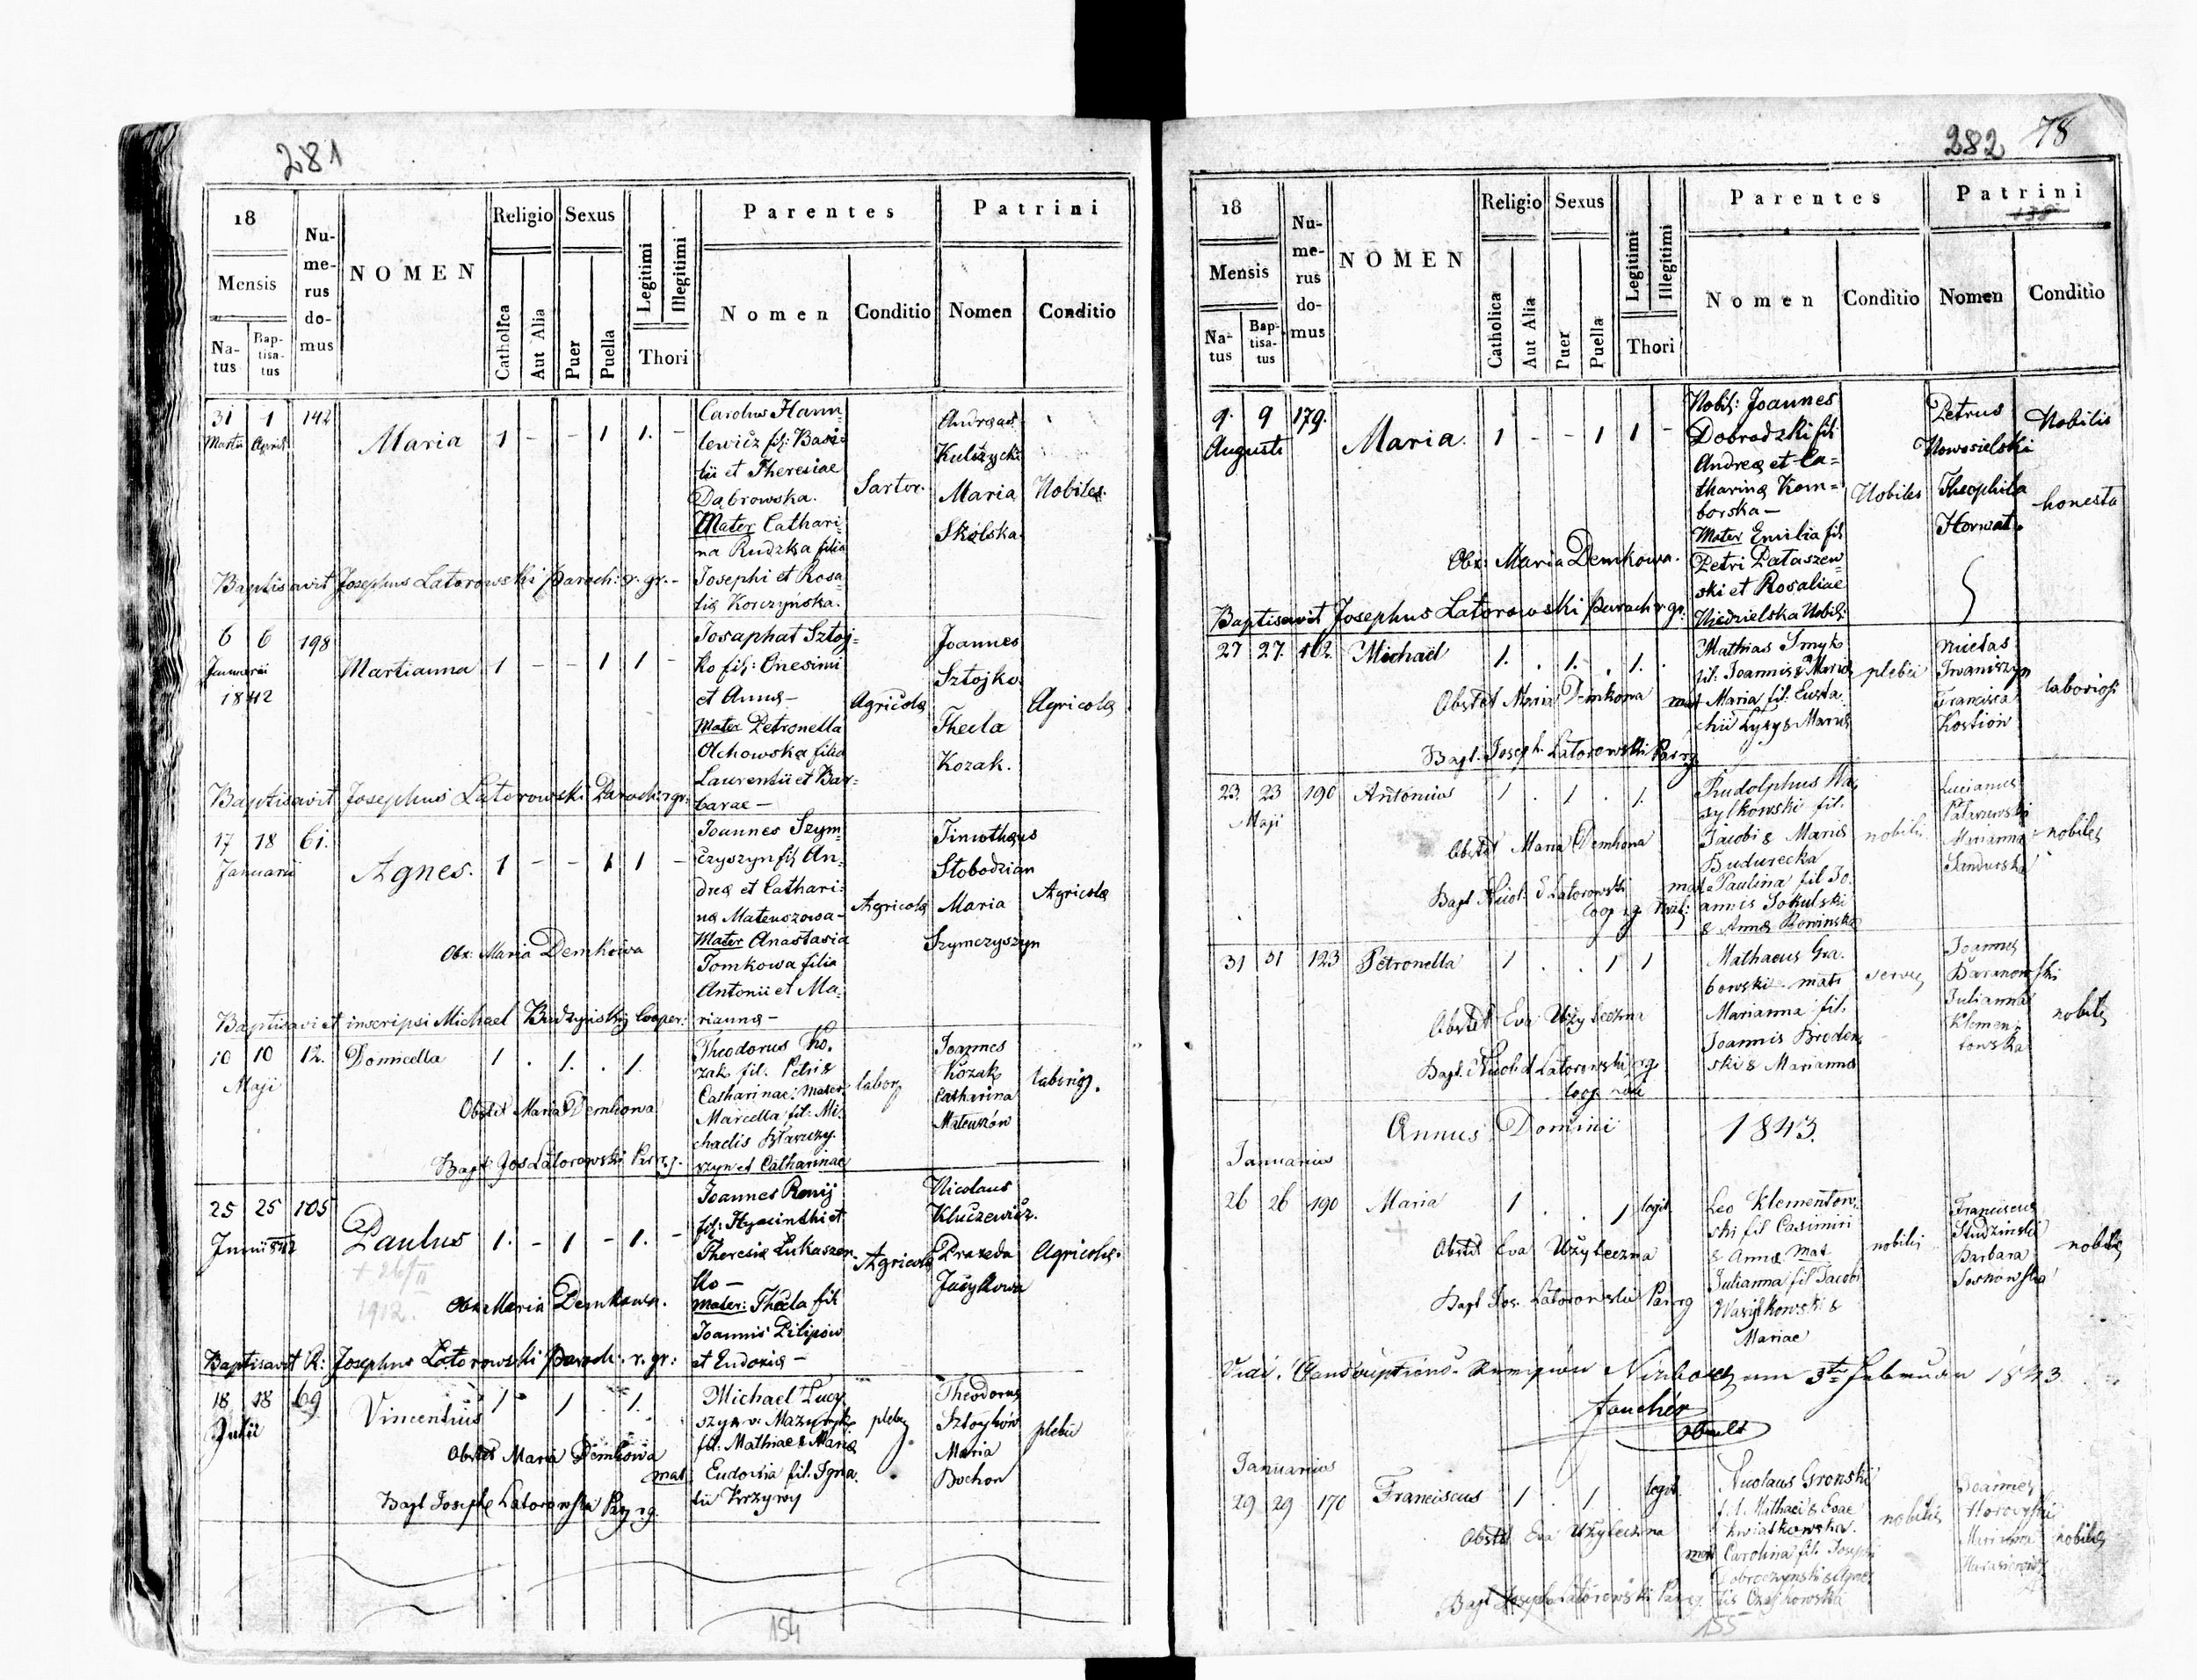 281
18
Mensis
Na-
tus
Bap-
tisa-
tus
Nu-
me-
rus
do-
mus
NOMEN
Religio
Catholica
Aut Alia
Sexus
Puer
Puella
Legitimi
Illegitimi
Thori
Parentes
Nomen
Conditio
Patrini
Nomen
Conditio
31 1 142
Martii Aprili
Maria 1 - - 1 1. -
Carolus Hann
lewicz fil: Basi-
lii et Theresiae
Dąbrowska.
Mater Cathari-
na Rudzka filia
Josephi et Rosa
lia Korczyńska.
Sartor.
Andreas
Kulczycki
Maria
Skolska
Nobiles.
Baptisavit Josephus Latorowski Paroch: r. gr. -
6 6 198
Januarii
1842
Martianna 1 - - 1 1 -
Josaphat Sztoj-
ko fil: Onesimi
et Anna -
Mater Petronella
Olchowska filia
Laurentii et Bar-
barae -
Agricola
Joannes
Sztojko
Thecla
Kozak.
Agricola
Baptisavit Josephus Latorowski Paroch: r gr:
17 18 61.
Januarii
Agnes. 1 - - 1 1 -
Joannes Szym-
czyszyn fil An-
drea et Cathari-
na Mateuszowa -
Mater Anastasia
Tomkowa filia
Antonii et Ma-
rianna -
Agricola
Timotheus
Słobodzian
Maria
Szymczyszyn
Agricola
Obx: Maria Demkowa
Baptisavi et inscripsi Michael Budzyński Cooper:
10 10 12.
Maji
Domicella 1 . 1. . 1.
Theodorus Ko-
zak fil. Petri &
Catharinae: Mater
Marcella fil: Mi-
chaelis
szyn et Catharinae
labor
Joannes
Kozak
Catharina
Mateuszów
laborios.
Obstet Maria Demkowa
Bapt Jos Latorowski Par r.g.
25 25 105
Junii 842
Paulus 1. - 1 - 1. -
+ 26/II
1912.
Joannes Remij
fil: Hyacinthi et
Theresia Łukaszen
ko -
Mater: Thecla fil
Joannis Pilipów
et Eudoxia -
Agricola
Nicolaus
Kluczewicz.
Praxeda
Juzykowa
Agricola.
Obx Maria Demkowa.
Baptisavit R: Josephus Latorowski Paroch: r. gr:
18 18 69
Julii
Vincentius 1 1 . 1.
Michael Łucy
szyn v: Mazuryk
fil: Mathiae & Maria
mat: Eudoxia fil. Igna
tii Krzywy
plebej
Theodorus
Sztoyków
Maria
Bochon
plebii
Obstet Maria Demkowa
Bapt Joseph Latorowski Par r.g.
154
282 78
18
Mensis
Na-
tus
Bap-
tisa-
tus
Nu-
me-
rus
do-
mus
NOMEN
Religio
Catholica
Aut Alia
Sexus
Puer
Puella
Legitimi
Illegitimi
Thori
Parentes
Nomen
Conditio
Patrini
Nomen
Conditio
9. 9 179.
Augusti
Maria. 1 - - 1 1 -
Nobil: Joannes
Dobrodzki fil:
Andrea et Ca-
tharina Kom-
borska -
Mater Emilia fil
Petri Pataszew-
ski et Rosaliae
Niedzielska Nobil:
Nobiles
Petrus
Nowosielski
Theophila
Horwat.
Nobilis
honesta
Obx: Maria Demkowa.
Baptisavit Josephus Latorowski Paroch r. gr:
27 27. 102.
Michael 1. . 1. . 1. .
Mathias Smyk
fil: Joannis & Maria
mat Maria fil: Eusta-
chii Łysy & Maria
plebei
Nicetas
Iwaniszyn
Francisca
Kostiów
laboriosi
Obstet Maria Demkowa
Bapt. Joseph. Latorowski Par rg
23. 23 190
Maji
Antonius 1 . 1 . 1.
Rudolphus Wa-
sylkowski fil.
Jacobi & Maria
Budurecka
mat Paulina fil Jo-
annis Sokulski
& Anna Rowinska
nobilis
Lucianus
Marianna
nobiles
Obstet Maria Demkowa
Bapt Nicol: Latorowski
Coop r.g.
31 31 123
Petronella 1 . . 1 1
Mathaeus Gra-
bowski mat:
Marianna fil.
Joannis
ski & Marianna
servus
Joannes
Baranowski
Julianna
Klemen-
towska
nobiles
Obstet Eva Użyteczna
Bapt. Nicol Latorowski rg
Coop.
Annus Domini 1843.
Januarius
26 26 190
Maria 1 . . 1 legit
Leo Klementow-
ski fil Casimiri
& Anna mat
Julianna fil Jacobi
Wasylkowski &
Mariae
nobilis
Franciscus
Studzinski
Barbara
nobiles
Obstet Eva Użyteczna
Bapt Jos. Latorowski Par rg
Vidi. Conscriptions am 3ten Februar 1843.
Januarius
29 29 170
Franciscus 1 . 1 . legit
Nicolaus Gronski
fil Mathaei & Evae
Kwiatkowska.
mat Carolina fil. Josephi
nobilis
Joannes
nobiles
Obstet Eva Użyteczna
Bapt Joseph Latorowski Par rg
155